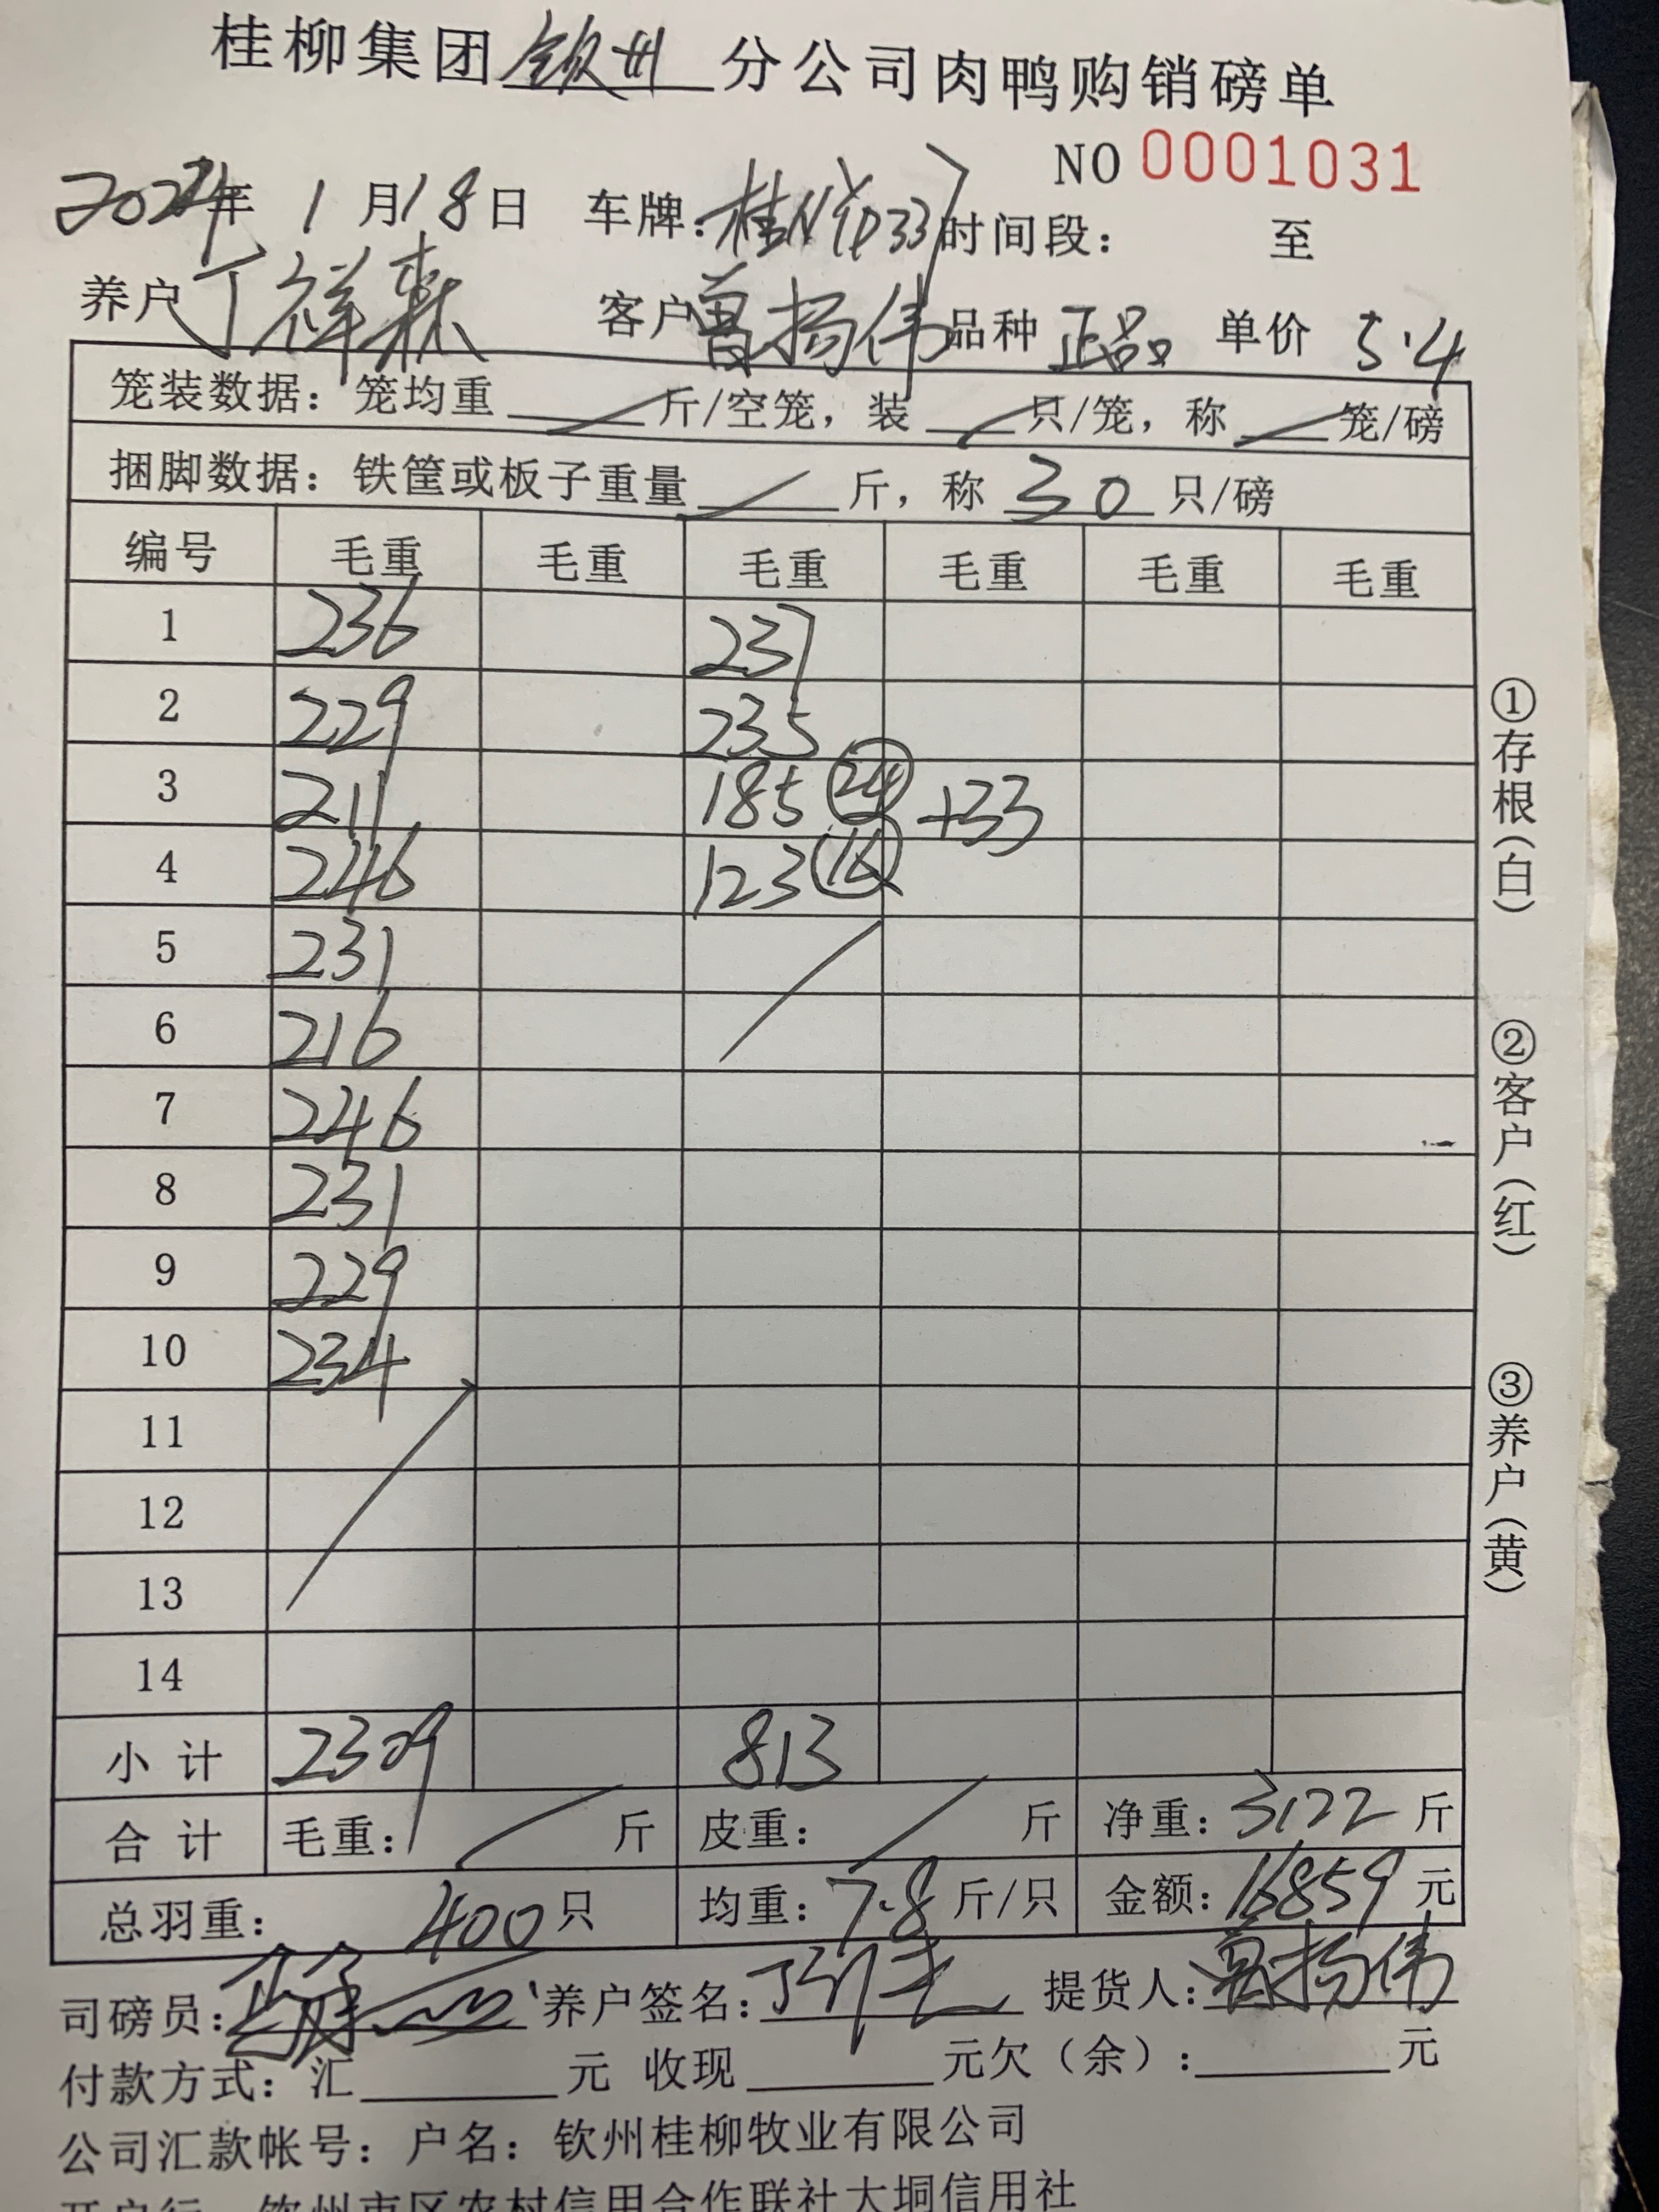 桂柳集团钦州分公司肉鸭购销磅单
NO 0001031
2024年 1月18日 车牌: 时间段: 至
养户 丁祥森 客户 曾扬伟 品种 正品 单价 5.4
笼装数据: 笼均重 斤/空笼, 装 只/笼, 称 笼/磅
捆脚数据: 铁筐或板子重量 斤, 称 30 只/磅
编号 毛重 毛重 毛重 毛重 毛重 毛重
1 236 237
2 229 235
3 211 185 24 +33
4 246 123 16
5 231
6 216
7 246
8 231
9 229
10 234
11
12
13
14
小 计 2309 813
合 计 毛重: 斤 皮重: 斤 净重: 3122 斤
总羽重: 400 只 均重: 7.8 斤/只 金额: 16859 元
司磅员: 养户签名: 提货人: 曾扬伟
付款方式: 汇 元 收现 元欠(余): 元
公司汇款帐号: 户名: 钦州桂柳牧业有限公司
开户行: 钦州市区农村信用合作联社大垌信用社
①存根(白)
②客户(红)
③养户(黄)